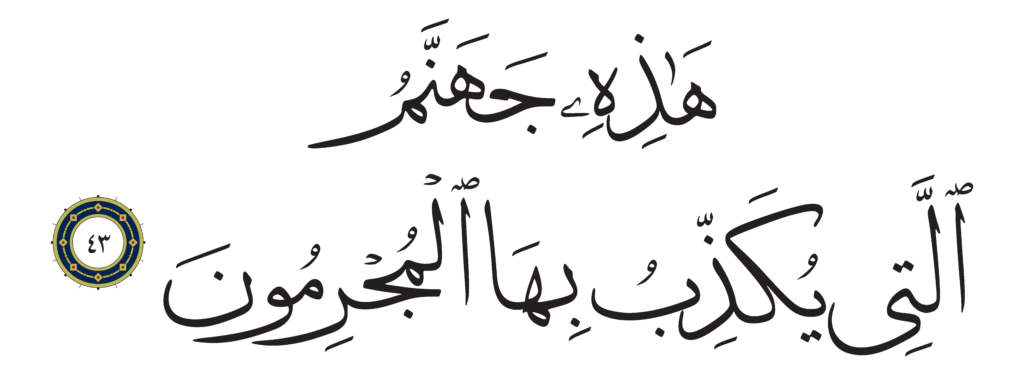 هَٰذِهِۦ جَهَنَّمُ
ٱلَّتِى يُكَذِّبُ بِهَا ٱلْمُجْرِمُونَ ٤٣